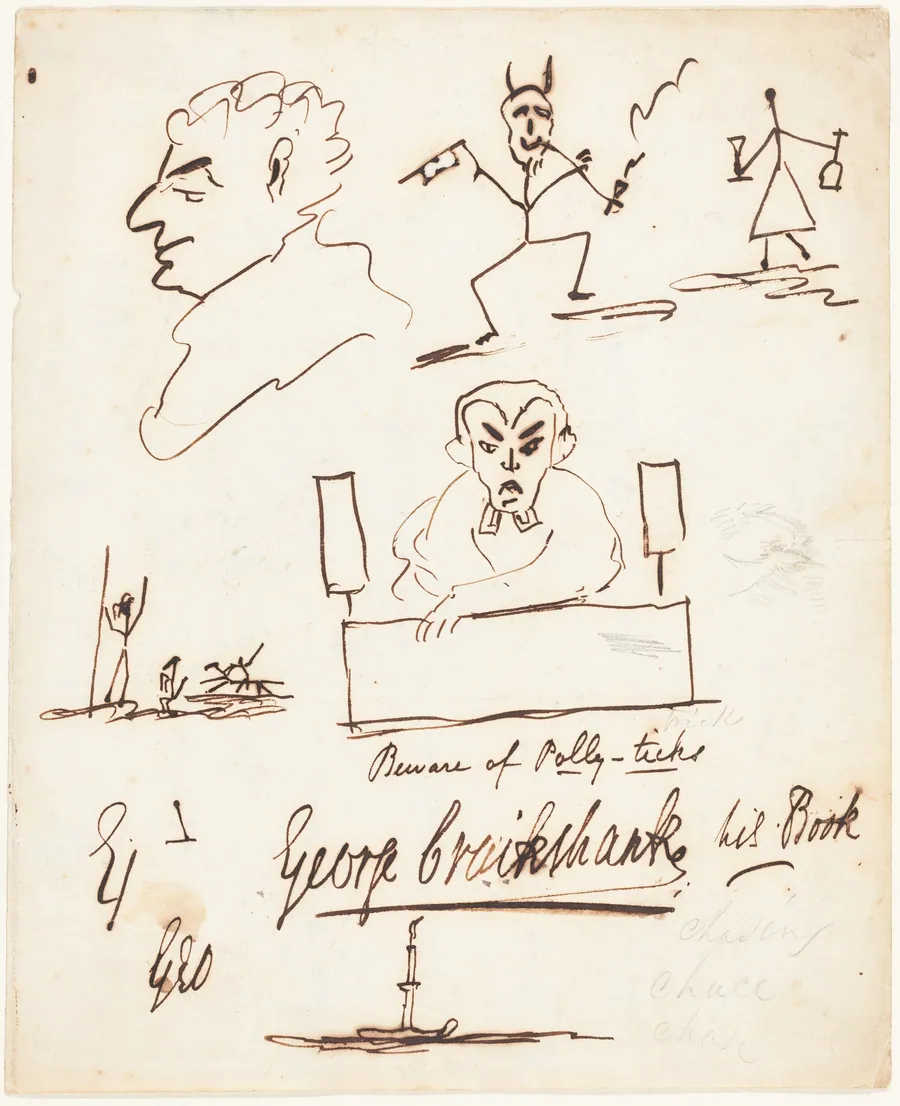 trick
Beware of Polly-ticks
George Cruikshank his Book
Geo
chasing
chace
chase